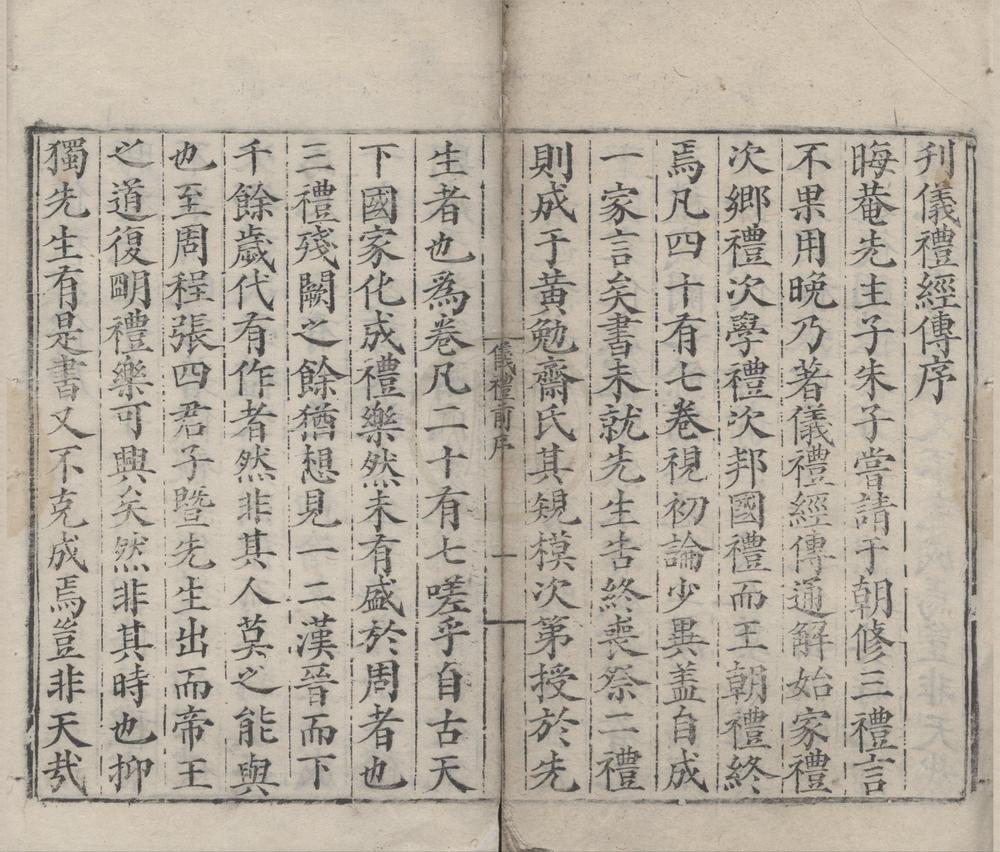 刊儀禮經傳序
晦菴先生子朱子嘗請于朝修三禮言
不果用晚乃著儀禮經傳通解始家禮
次鄉禮次學禮次邦國禮而王朝禮終
焉凡四十有七卷視初論少異盖自成
一家言矣書未就先生告終喪祭二禮
則成于黃勉齋氏其䂓模次第授於先
儀禮前序
一
生者也爲卷凡二十有七嗟乎自古天
下國家化成禮樂然未有盛於周者也
三禮殘闕之餘猶想見一二漢晉而下
千餘歲代有作者然非其人莫之能與
也至周程張四君子曁先生出而帝王
之道復朙禮樂可興矣然非其時也抑
獨先生有是書又不克成焉豈非天㢤